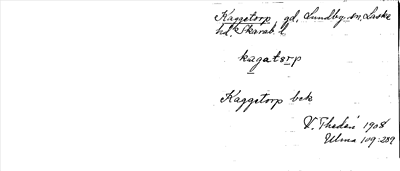 Kaggetorp gd, Lundby sn, Laske
hd. Skarab. l
kagatorp
Kaggetorp bck
V. Thedén 1908
Ulma 109:289